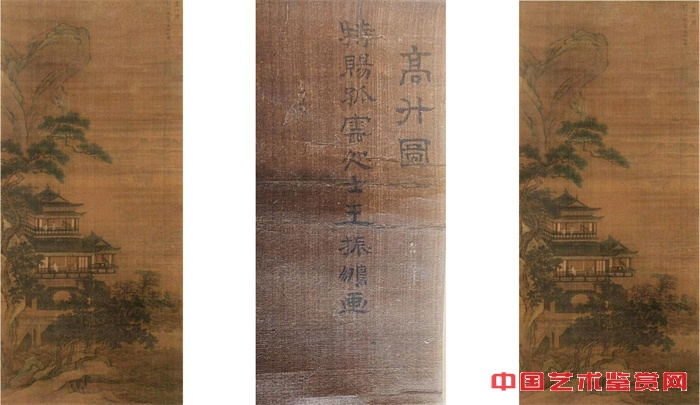 高升圖
特賜孤雲処士王振鵬画
中国艺术鉴赏网